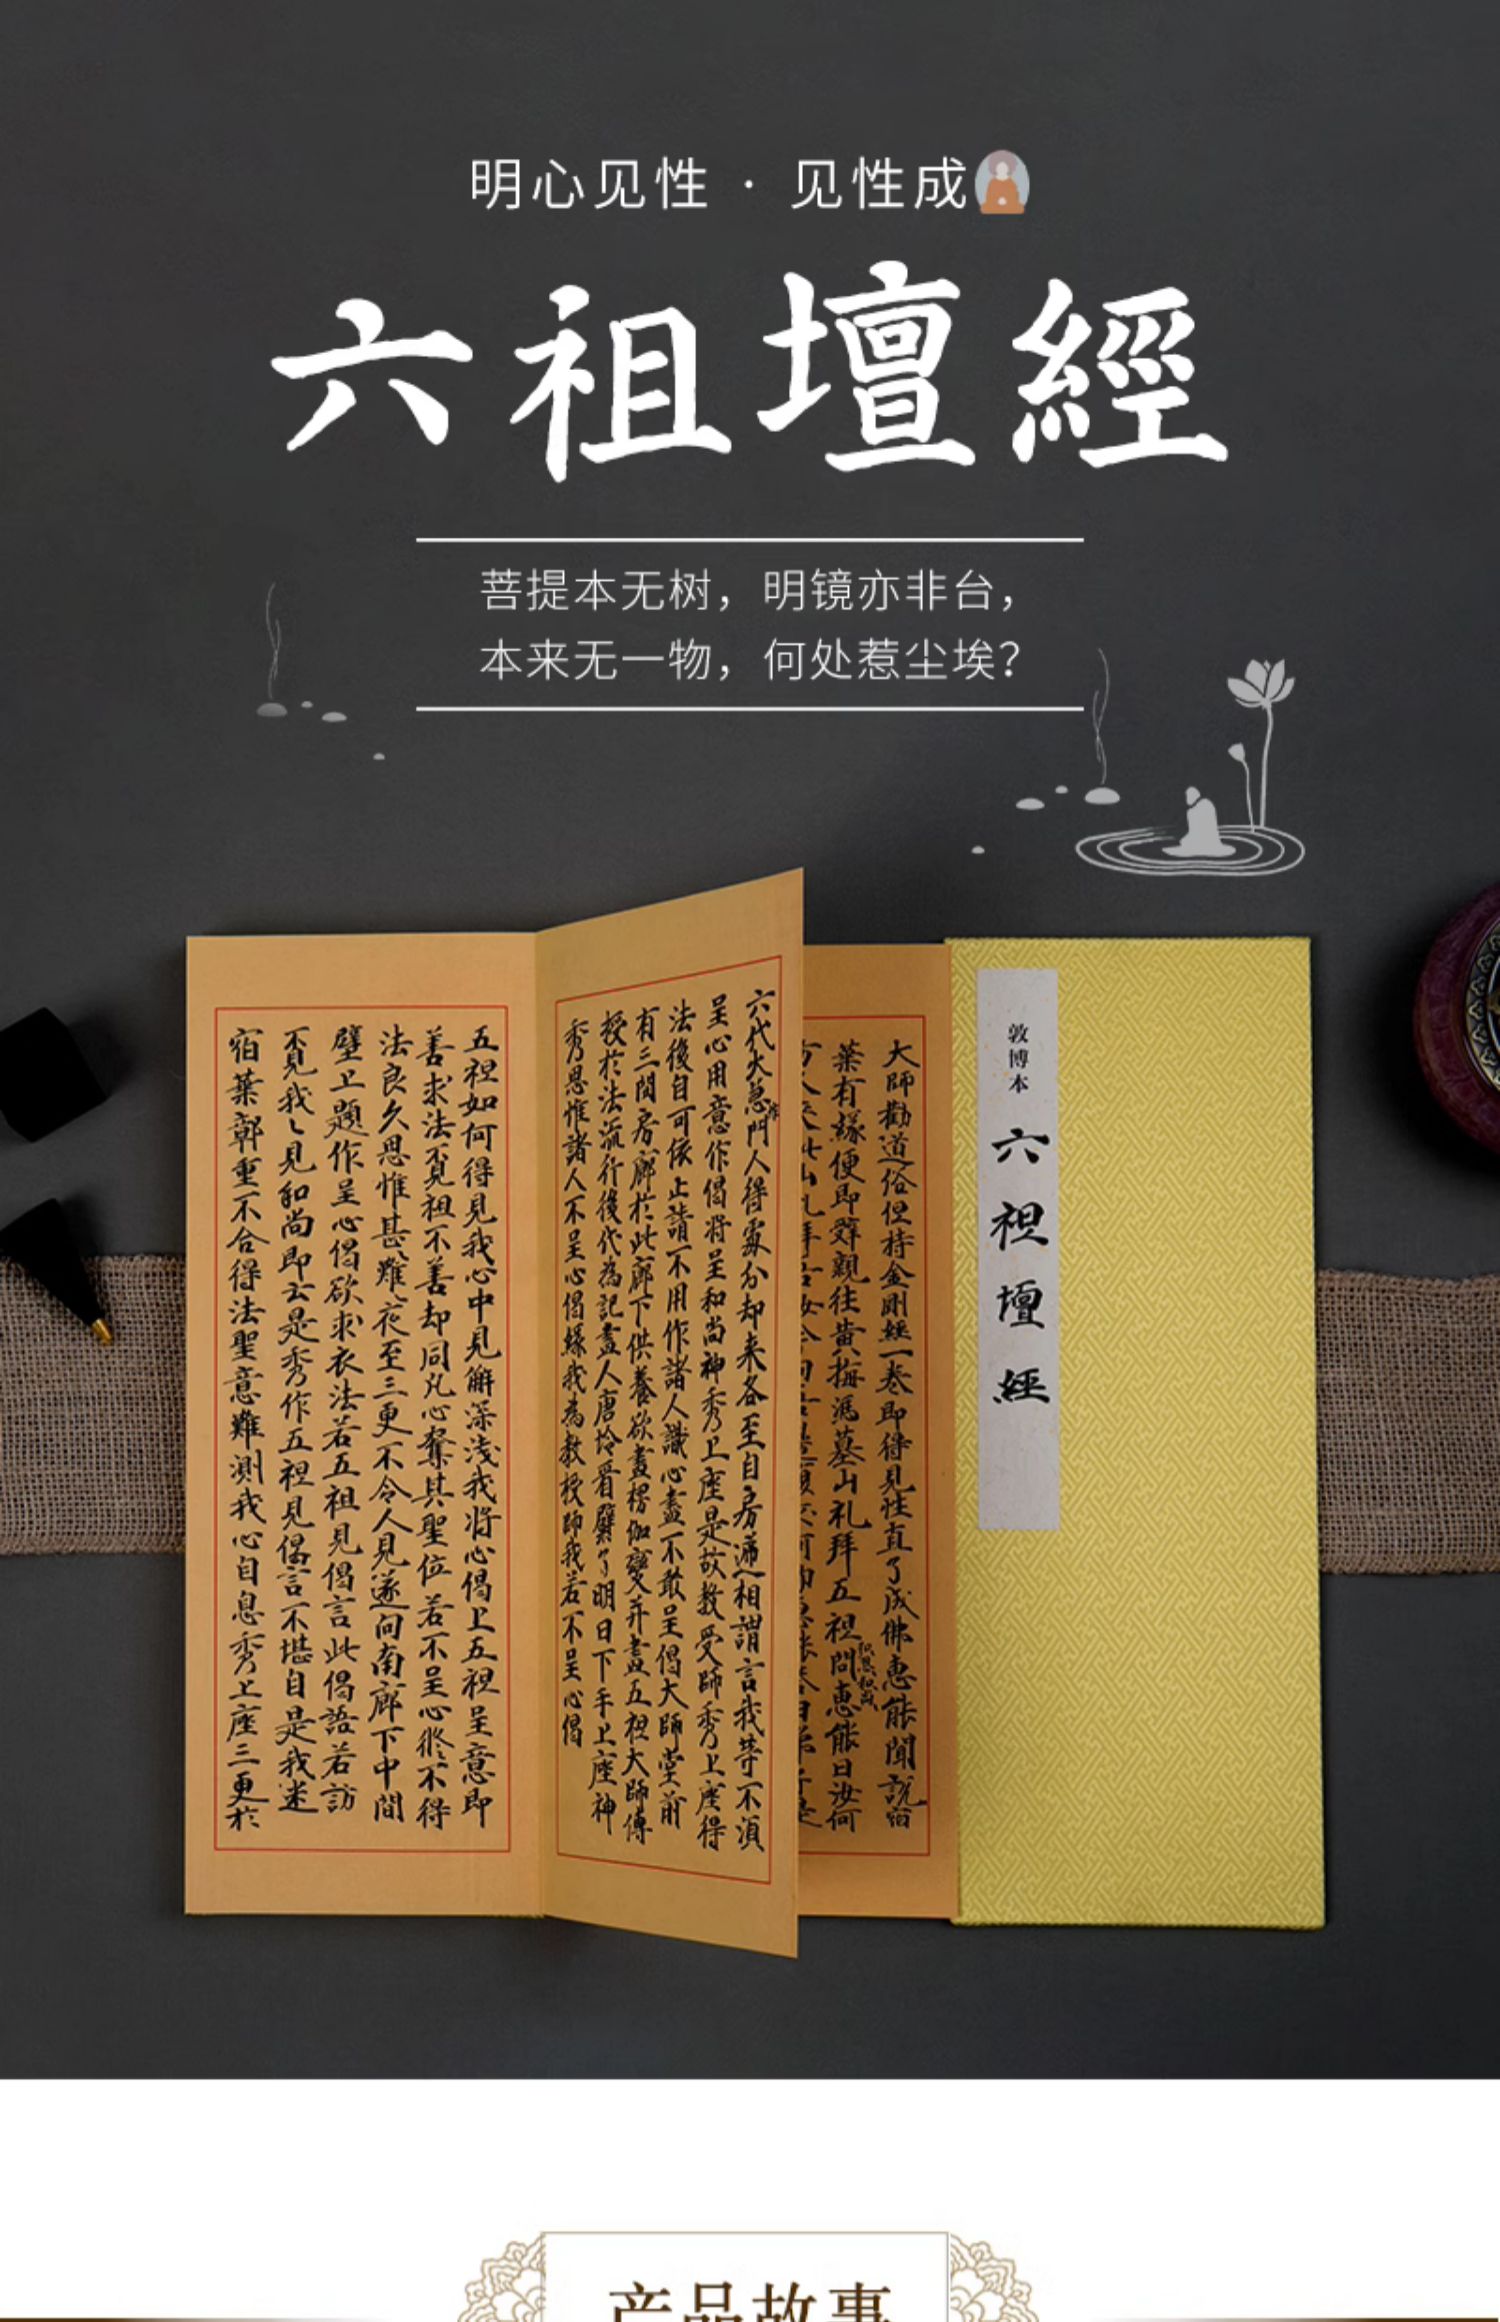 明心见性 · 见性成
六祖壇經
菩提本无树，明镜亦非台，
本来无一物，何处惹尘埃？
敦博本
六祖壇經
大師勸道俗但持金剛經一卷即得見性直了成佛惠能聞說宿
葉有緣便即辭親往黃梅馮墓山礼拜五祖問惠能曰汝何
六代火急作門人得處分却来各至自房遞相謂言我等不湏
呈心用意作偈将呈和尚神秀上座是故教受師秀上座得
法後自可依止請不用作諸人識心盡不敢呈偈大師堂前
有三間房廊於此廊下供養欲畫楞伽變并畫五祖大師傳
授於法流行後代為記畫人唐怜看壁了明日下手上座神
秀思惟諸人不呈心偈緣我為教授師我若不呈心偈
五祖如何得見我心中見解深淺我将心偈上五祖呈意即
善求法覓祖不善却同凡心奪其聖位若不呈心修不得
法良久思惟甚難夜至三更不令人見遂向南廊下中間
壁上題作呈心偈欲求衣法若五祖見偈言此偈語若訪
覓我我見和尚即云是秀作五祖見偈言不堪自是我迷
宿葉鄣重不合得法聖意難測我心自息秀上座三更於
产品故事